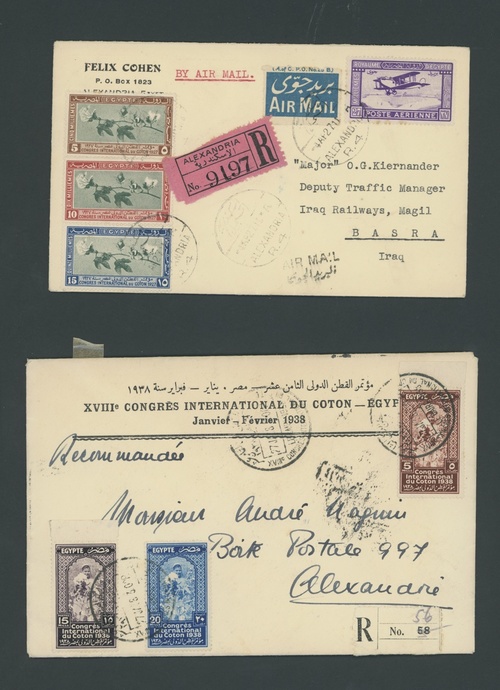 FELIX COHEN
P. O. Box 1823
ALEXANDRIA, EGYPT
BY AIR MAIL.
بريد جوى
AIR MAIL
ROYAUME D'EGYPTE
POSTE AERIENNE
EGYPTE
5
CONGRES INTERNATIONAL DU COTON 1927
EGYPTE
10
CONGRES INTERNATIONAL DU COTON 1927
EGYPTE
15
١٥
CONGRES INTERNATIONAL DU COTON 1927
ALEXANDRIA
R
No. 9197
ALEXANDRIA
"Major" O.G.Kiernander
Deputy Traffic Manager
Iraq Railways, Magil
BASRA
Iraq
AIR MAIL
مؤتمر القطن الدولى الثامن عشر — مصر . يناير - فبراير سنة ١٩٣٨
XVIIIe CONGRÈS INTERNATIONAL DU COTON — EGYP
Janvier - Février 1938
Recommandée
Monsieur André
Boite Postale 997
Alexandrie
EGYPTE مصر
5 ٥
Congrès
International
du Coton 1938
EGYPTE مصر
15 ١٥
Congrès
International
du Coton 1938
EGYPTE مصر
20 ٢٠
Congrès
International
du Coton 1938
56
R No. 58